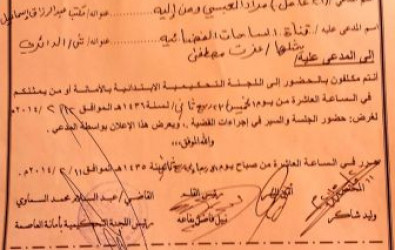 مراد العبسي ومن إليه عنوانه/ مكتب عبدالرزاق اسماعيل
اسم المدعى عليه/ قناة الساحات الفضائية عنوانه/ ش/ الدائري
يمثلها/ عزت مصطفى
إلى المدعى عليه/
أنتم مكلفون بالحضور إلى اللجنة التحكيمية الابتدائية بالأمانة أو من يمثلكم
في الساعة العاشرة من يوم لسنة ١٤٣٥هـ الموافق /٢/ ٢٠١٤م
لغرض: حضور الجلسة والسير في إجراءات القضية ، ويعرض هذا الإعلان بواسطة المدعي .
والله الموفق،،،
صدر في الساعة العاشرة من صباح يوم ١٤٣٥هـ الموافق ١١/ ٢/ ٢٠١٤م .
المختص أمين السر رئيس القلم القاضي/ عبد السلام محمد السماوي
وليد شاكر نبيل فاضل بفاعه رئيس اللجنة التحكيمية بأمانة العاصمة